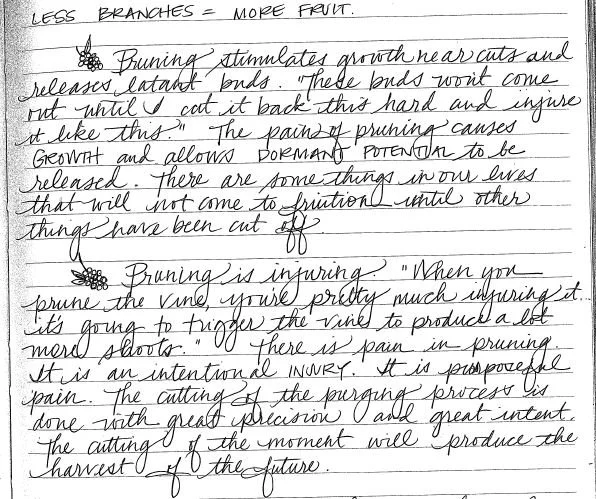 LESS BRANCHES = MORE FRUIT.
Pruning stimulates growth near cuts and
releases latant buds. "These buds won't come
out until I cut it back this hard and injure
it like this." The pains of pruning causes
GROWTH and allows DORMANT POTENTIAL to be
released. There are some things in our lives
that will not come to friution until other
things have been cut off.
Pruning is injuring. "When you
prune the vine, you're pretty much injuring it...
it's going to trigger the vine to produce a lot
more shoots." There is pain in pruning.
It is an intentional INJURY. It is purposeful
pain. The cutting of the purging process is
done with great precision and great intent.
The cutting of the moment will produce the
harvest of the future.